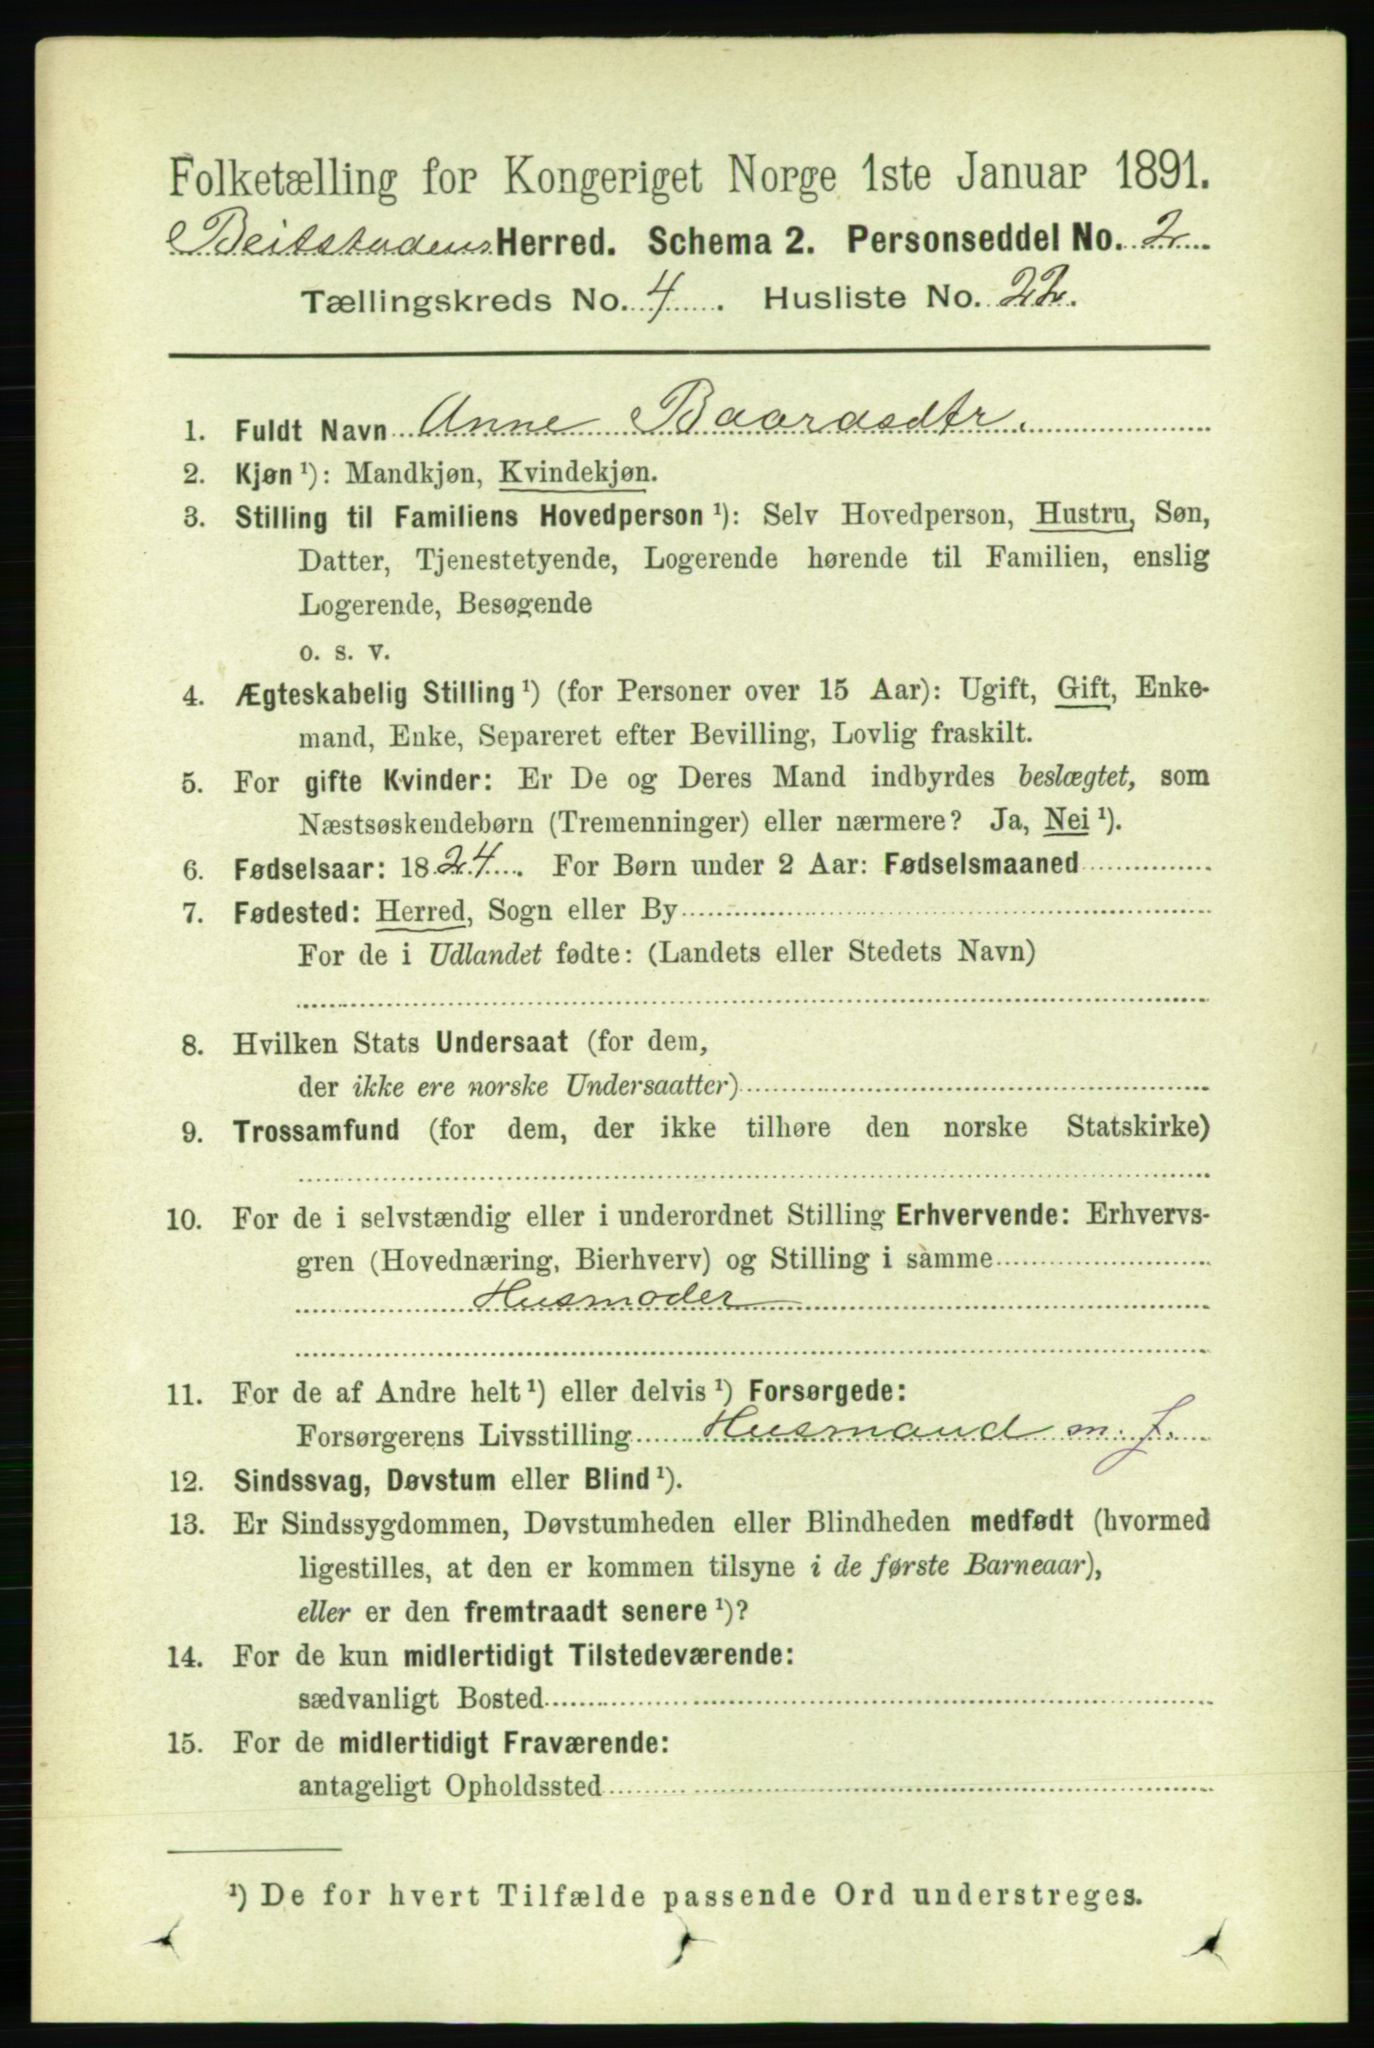 Folketælling for Kongeriget Norge 1ste Januar 1891.
Beitstadens Herred. Schema 2. Personseddel No. 2
Tællingskreds No. 4. Husliste No. 22.
1. Fuldt Navn Anne Baarasdtr.
2. Kjøn ¹): Mandkjøn, Kvindekjøn.
3. Stilling til Familiens Hovedperson ¹): Selv Hovedperson, Hustru, Søn,
Datter, Tjenestetyende, Logerende hørende til Familien, enslig
Logerende, Besøgende
o. s. v.
4. Ægteskabelig Stilling ¹) (for Personer over 15 Aar): Ugift, Gift, Enke-
mand, Enke, Separeret efter Bevilling, Lovlig fraskilt.
5. For gifte Kvinder: Er De og Deres Mand indbyrdes beslægtet, som
Næstsøskendebørn (Tremenninger) eller nærmere? Ja, Nei ¹).
6. Fødselsaar: 1824. For Børn under 2 Aar: Fødselsmaaned
7. Fødested: Herred, Sogn eller By
For de i Udlandet fødte: (Landets eller Stedets Navn)
8. Hvilken Stats Undersaat (for dem,
der ikke ere norske Undersaatter)
9. Trossamfund (for dem, der ikke tilhøre den norske Statskirke)
10. For de i selvstændig eller i underordnet Stilling Erhvervende: Erhvervs-
gren (Hovednæring, Bierhverv) og Stilling i samme
Husmoder
11. For de af Andre helt ¹) eller delvis ¹) Forsørgede:
Forsørgerens Livsstilling Husmand m. J.
12. Sindssvag, Døvstum eller Blind ¹).
13. Er Sindssygdommen, Døvstumheden eller Blindheden medfødt (hvormed
ligestilles, at den er kommen tilsyne i de første Barneaar),
eller er den fremtraadt senere ¹)?
14. For de kun midlertidigt Tilstedeværende:
sædvanligt Bosted
15. For de midlertidigt Fraværende:
antageligt Opholdssted
¹) De for hvert Tilfælde passende Ord understreges.